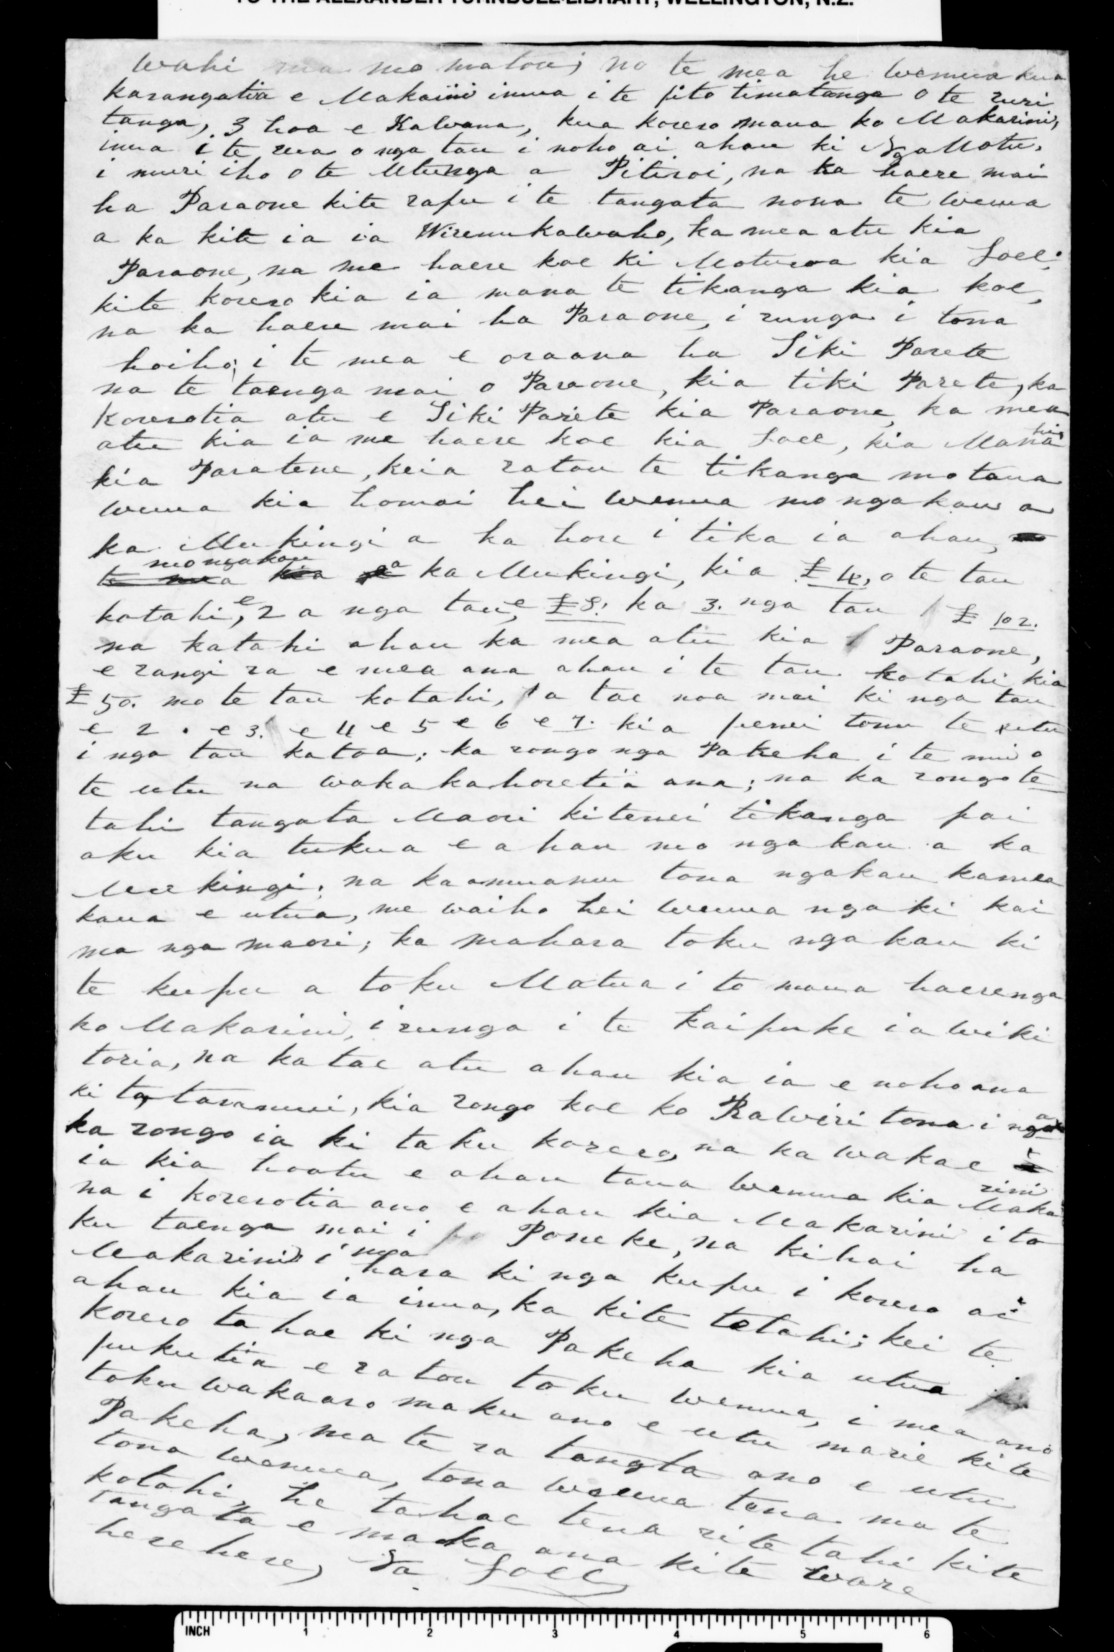 TO THE ALEXANDER TURNBULL LIBRARY, WELLINGTON, N.Z.
wahi ma mo matou; no te mea he wenua kua
karangatia e Makarini imua i te pito timatanga o te ruri
tanga, 3 hoa e Kawana, kua korero maua ko Makarini,
imua i te rua o nga tau i noho ai ahau ki Nga Motu.
i muri iho o te Utunga a Pitiroi, na ka haere mai
ha Paraone kite rapu i te tangata nona te wenua
a ka kite ia ia Wiremu kawaho, ka mea atu kia
Paraone, na me haere koe ki Moturoa kia Poee;
kite korero kia ia mana te tikanga kia koe,
na ka haere mai ha Paraone, i runga i tona
hoiho; i te mea e oraana ha Tiki Parete
na te taenga mai o Paraone, kia tiki Parete, ka
korerotia atu e Tiki Parete kia Paraone, ka mea
atu kia ia me haere koe kia Poee, kia Manahi
kia Paratene, keia ratou te tikanga mo taua
wenua kia homai hei wenua mo nga kau a
ka Mukingi a ka hore i tika ia ahau,
mo nga kau a ka Mukingi, kia £ 4, o te tau
kotahi, e 2 a nga tau, e £8! ka 3. nga tau £ 102.
na katahi ahau ka mea atu kia Paraone,
e rangi ra e mea ana ahau i te tau kotahi kia
£ 50. mo te tau kotahi, a tae noa mai ki nga tau
e 2. e 3. e 4 e 5 e 6 e 7. kia penei tonu te utu
i nga tau katoa; ka rongo nga Pakeha i te nui o
te utu na waka kahoretia ana; na ka rongo te
tahi tangata Maori kitenei tikanga pai
aku kia tukua e ahau mo nga kau a ka
Mukingi; na kaamuamu tona ngakau kamea
kaua e utua, me waiho hei wenua ngaki kai
ma nga maori; ka mahara toku ngakau ki
te kupu a toku Matua i to maua haerenga
ko Makarini, i runga i te kaipuke ia wiki
toria, na ka tae atu ahau kia ia e noho ana
ki tataramui, kia rongo koe ko Rawiri tona ingoa
ka rongo ia ki taku korero, na ka wakae
ia kia hoatu e ahau taua wenua kia Makarini
na i korerotia ano e ahau kia Makarini i to
ku taenga mai i Poneke, na kihai ha
Makarini i nga hara ki nga kupu i korero ai
ahau kia ia imua, ka kite tetahi; kei te
korero tahae ki nga Pakeha kia utua
pukutia e ratou toku wenua, i mea ano
toku wakaaro maku ano e utu marie kite
Pakeha, ma te ra tangta ano e utu
tona wenua, tona wenua tona. ma te
kotahi, he tahae tena rite tahi kite
tangata e maka ana kite ware
herehere, Na Poee
INCH 1 2 3 4 5 6